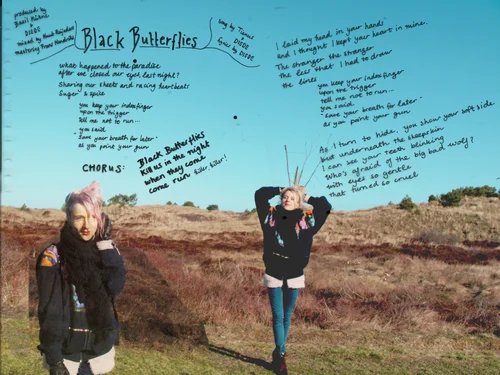 produced by
DIODE
mixed by
mastering
Black Butterflies
Song by
DIODE
lyrics by DIODE
what happened to the paradise
after we closed our eyes last night?
Sharing our sheets and racing heartbeats
Sugar & spice
you keep your indexfinger
upon the trigger
tell me not to run...
you said
save your breath for later -
as you point your gun
CHORUS:
Black Butterflies
Kill us in the night
when they come
come run killer, killer!
I laid my head in your hands
and I thought I kept your heart in mine.
The stranger the stranger
The less that I had to draw
the lines
you keep your indexfinger
upon the trigger
tell me not to run...
you said
"save your breath for later -
as you point your gun
As I turn to hide you show your soft side
but underneath the sheepskin
I can see your teeth blinking
Who's afraid of the big bad wolf?
with eyes so gentle
that turned so cruel